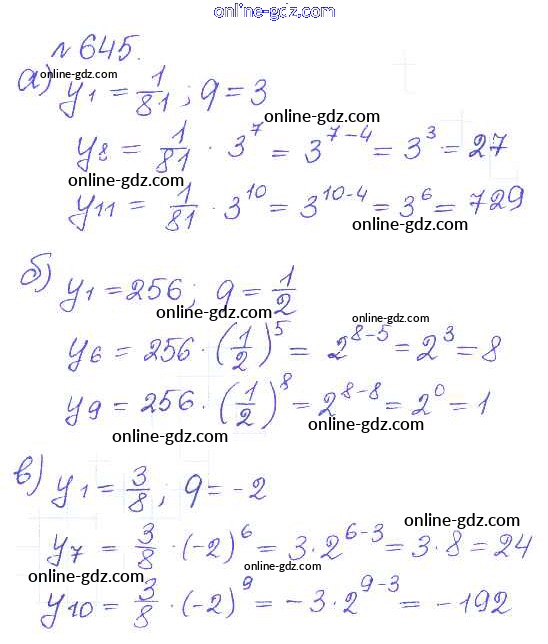 online-gdz.com
№ 645.
online-gdz.com
а) y₁ = 1/81; q = 3
online-gdz.com
y₈ = 1/81 · 3⁷ = 3⁷⁻⁴ = 3³ = 27
online-gdz.com
y₁₁ = 1/81 · 3¹⁰ = 3¹⁰⁻⁴ = 3⁶ = 729
online-gdz.com
б) y₁ = 256; q = 1/2
online-gdz.com
online-gdz.com
y₆ = 256 · (1/2)⁵ = 2⁸⁻⁵ = 2³ = 8
online-gdz.com
y₉ = 256 · (1/2)⁸ = 2⁸⁻⁸ = 2⁰ = 1
online-gdz.com
в) y₁ = 3/8; q = -2
online-gdz.com
y₇ = 3/8 · (-2)⁶ = 3 · 2⁶⁻³ = 3 · 8 = 24
online-gdz.com
online-gdz.com
y₁₀ = 3/8 · (-2)⁹ = -3 · 2⁹⁻³ = -192
online-gdz.com